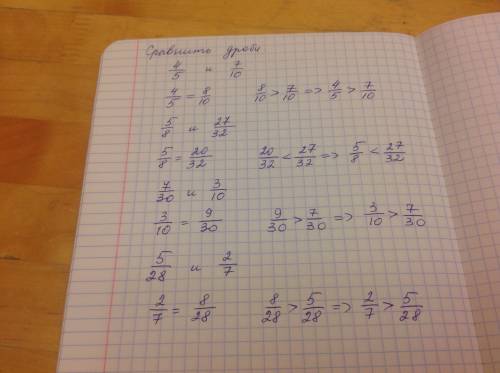 Сравнить дроби
4/5 и 7/10
4/5 = 8/10 8/10 > 7/10 => 4/5 > 7/10
5/8 и 27/32
5/8 = 20/32 20/32 < 27/32 => 5/8 < 27/32
7/30 и 3/10
3/10 = 9/30 9/30 > 7/30 => 3/10 > 7/30
5/28 и 2/7
2/7 = 8/28 8/28 > 5/28 => 2/7 > 5/28